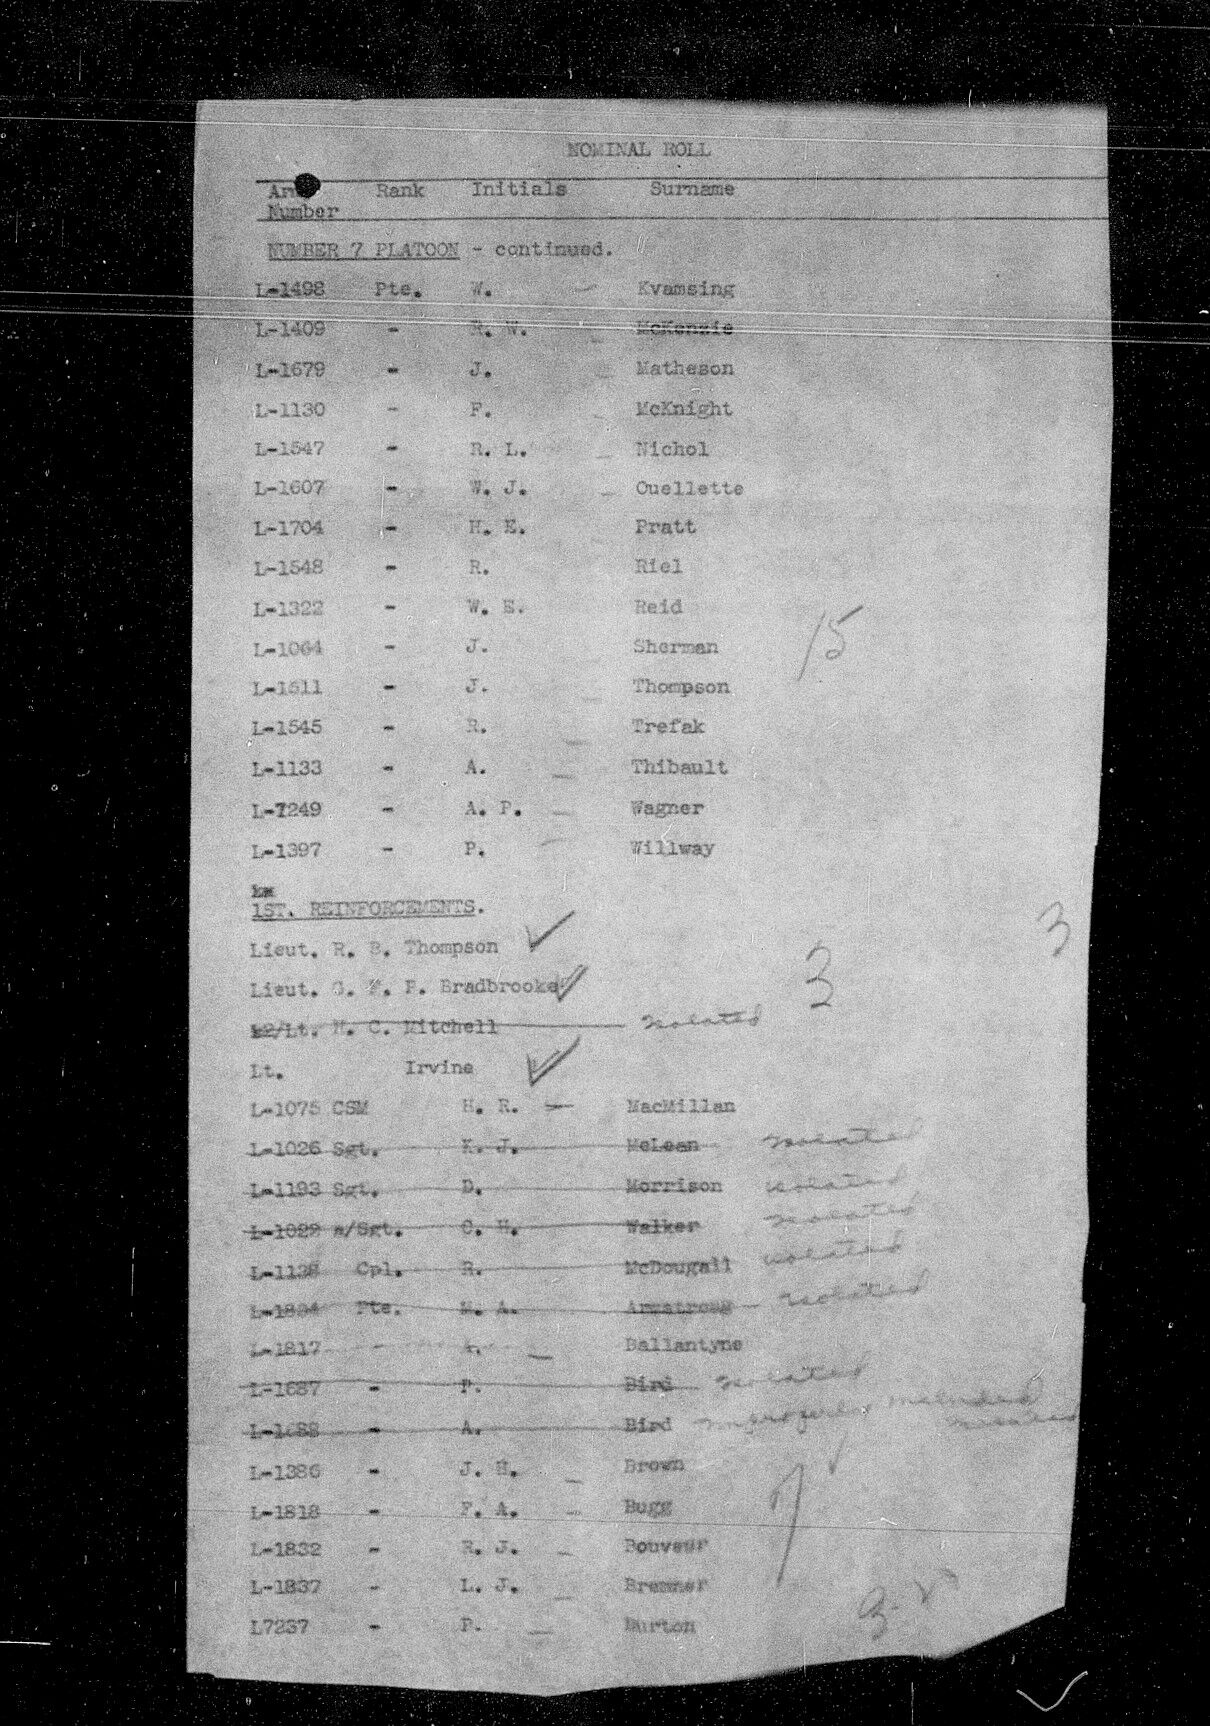 NOMINAL ROLL
Rank Initials Surname
Number
NUMBER 7 PLATOON - continued.
L-1498 Pte. W. Kvamsing
L-1409 - R. W. McKenzie
L-1679 - J. Matheson
L-1130 - F. McKnight
L-1547 - R. L. Nichol
L-1607 - W. J. Ouellette
L-1704 - H. E. Pratt
L-1548 - R. Riel
L-1322 - W. E. Reid
L-1064 - J. Sherman
L-1511 - J. Thompson
L-1545 - R. Trefak
L-1133 - A. Thibault
L-7249 - A. P. Wagner
L-1397 - P. Willway
15
1ST. REINFORCEMENTS.
Lieut. R. B. Thompson
Lieut. G. F. Bradbrooke
3
3
Lt. H. C. Mitchell isolated
Lt. Irvine
L-1075 CSM H. R. MacMillan
L-1026 Sgt. K. J. McLean isolated
L-1193 Sgt. D. Morrison isolated
L-1022 a/Sgt. C. H. Walker isolated
L-1138 Cpl. R. McDougall isolated
Pte. A. Armstrong isolated
L-1817 - A. Ballantyne
L-1687 - P. Bird isolated
L-1688 - A. Bird improperly included
L-1386 - J. H. Brown
L-1818 - F. A. Bugg
7
L-1832 - R. J. Bouveur
L-1837 - L. J. Bremner
L7237 - P. Burton